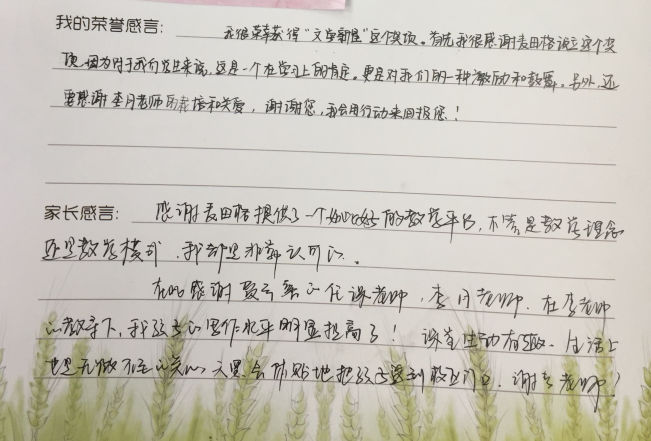 我的荣誉感言: 我很荣幸获得“文学新星”这个奖项。首先我很感谢麦田格设立这个奖
项,因为对于我们学生来说,这是一个在学习上的肯定。更是对我们的一种激励和鼓舞。另外,还
要感谢李月老师的栽培和关爱,谢谢您,我会用行动来回报您!
家长感言: 感谢麦田格提供了一个如此好的教学平台,不管是教学理念
还是教学模式,我都是非常认可的。
在此感谢 的任课老师,李月老师,在李老师
的教导下,我孩子的写作水平明显提高了!课堂生动有趣、生活上
也是无微不至的关心,文思会体贴地把孩子送到校门口,谢谢老师!